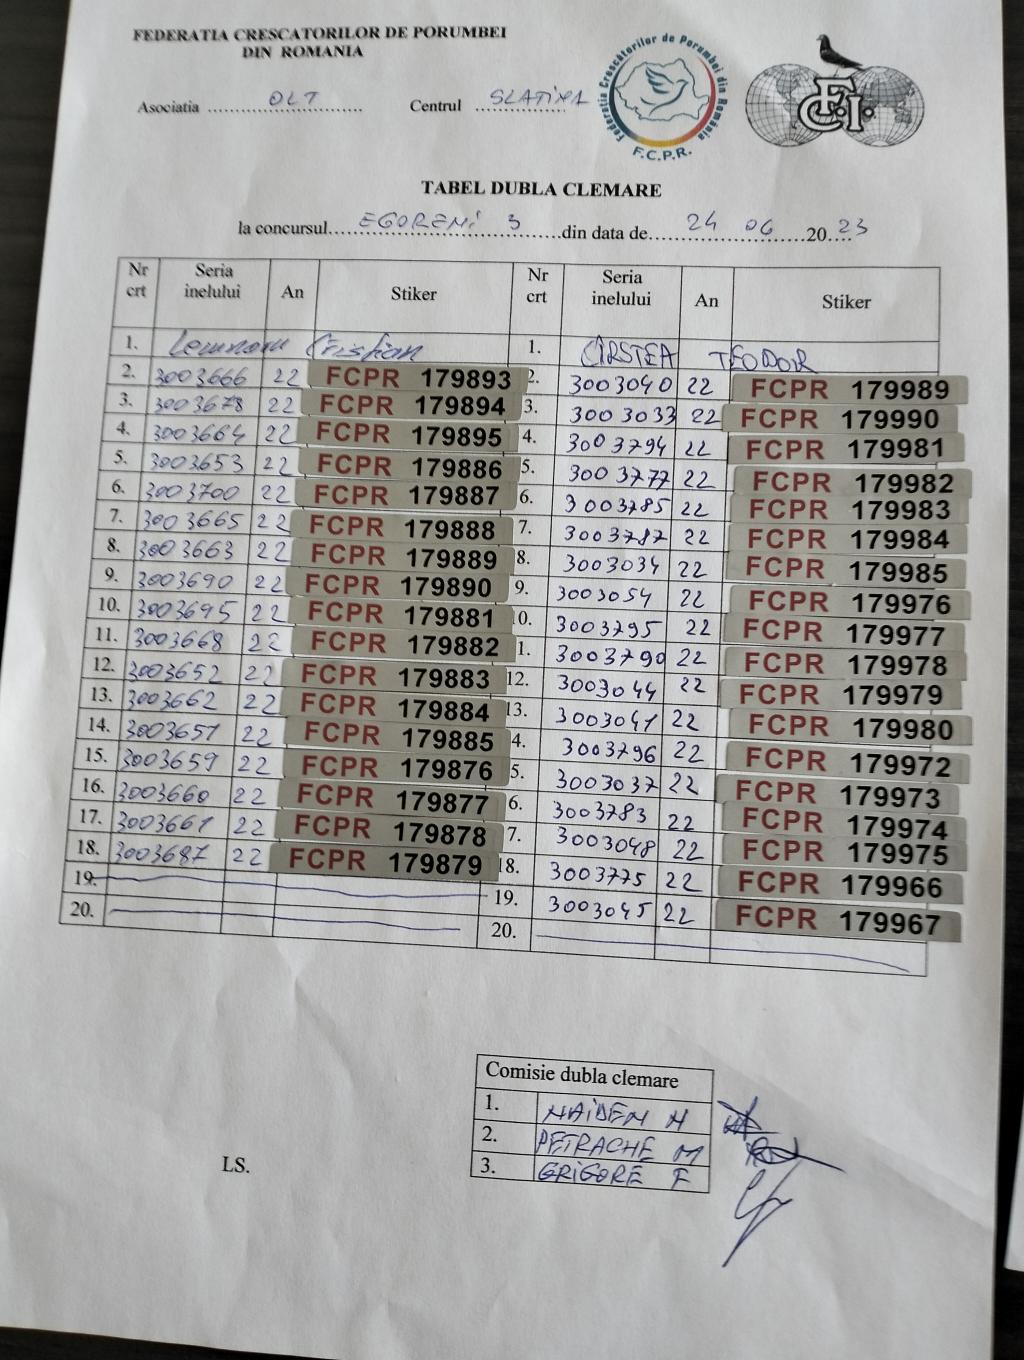 FEDERATIA CRESCATORILOR DE PORUMBEI
DIN ROMANIA
Asociatia OLT Centrul SLATINA
Federatia Crescatorilor de Porumbei din România
F.C.P.R.
F.C.I.
TABEL DUBLA CLEMARE
la concursul EGORENI 3 din data de 24 06 2023
Nr crt Seria inelului An Stiker Nr crt Seria inelului An Stiker
1. Cristian 1. CÎRSTEA TEODOR
2. 3003666 22 FCPR 179893 2. 3003040 22 FCPR 179989
3. 3003678 22 FCPR 179894 3. 3003033 22 FCPR 179990
4. 3003664 22 FCPR 179895 4. 3003794 22 FCPR 179981
5. 3003653 22 FCPR 179886 5. 3003777 22 FCPR 179982
6. 3003700 22 FCPR 179887 6. 3003785 22 FCPR 179983
7. 3003665 22 FCPR 179888 7. 3003787 22 FCPR 179984
8. 3003663 22 FCPR 179889 8. 3003034 22 FCPR 179985
9. 3003690 22 FCPR 179890 9. 3003054 22 FCPR 179976
10. 3003695 22 FCPR 179881 10. 3003795 22 FCPR 179977
11. 3003668 22 FCPR 179882 1. 3003790 22 FCPR 179978
12. 3003652 22 FCPR 179883 12. 3003044 22 FCPR 179979
13. 3003662 22 FCPR 179884 13. 3003041 22 FCPR 179980
14. 3003651 22 FCPR 179885 4. 3003796 22 FCPR 179972
15. 3003659 22 FCPR 179876 5. 3003037 22 FCPR 179973
16. 3003660 22 FCPR 179877 6. 3003783 22 FCPR 179974
17. 3003661 22 FCPR 179878 7. 3003048 22 FCPR 179975
18. 3003687 22 FCPR 179879 18. 3003775 22 FCPR 179966
19. 19. 3003045 22 FCPR 179967
20. 20.
Comisie dubla clemare
1. NAIDEN N
2. PETRACHE M
3. GRIGORE F
LS.